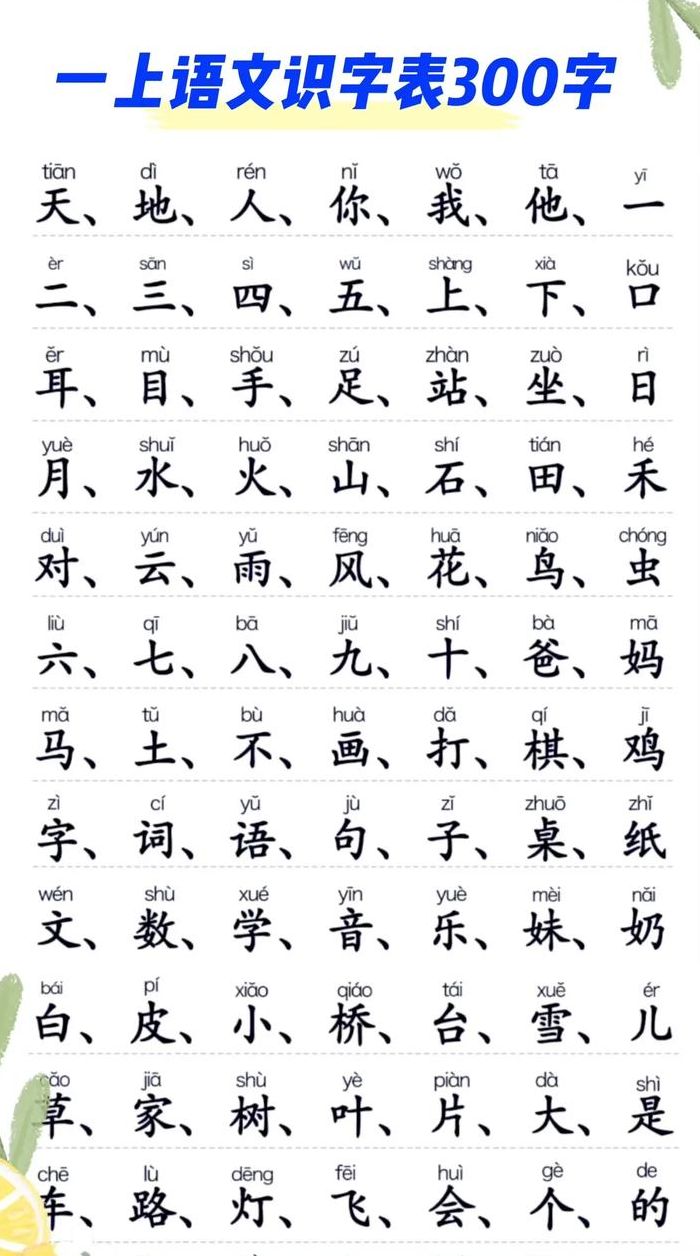 一上语文识字表300字
tiān dì rén nǐ wǒ tā yī
天、地、人、你、我、他、一
èr sān sì wǔ shàng xià kǒu
二、三、四、五、上、下、口
ěr mù shǒu zú zhàn zuò rì
耳、目、手、足、站、坐、日
yuè shuǐ huǒ shān shí tián hé
月、水、火、山、石、田、禾
duì yún yǔ fēng huā niǎo chóng
对、云、雨、风、花、鸟、虫
liù qī bā jiǔ shí bà mā
六、七、八、九、十、爸、妈
mǎ tǔ bù huà dǎ qí jī
马、土、不、画、打、棋、鸡
zì cí yǔ jù zǐ zhuō zhǐ
字、词、语、句、子、桌、纸
wén shù xué yīn yuè mèi nǎi
文、数、学、音、乐、妹、奶
bái pí xiǎo qiáo tái xuě ér
白、皮、小、桥、台、雪、儿
cǎo jiā shù yè piàn dà shì
草、家、树、叶、片、大、是
chē lù dēng fēi huì gè de
车、路、灯、飞、会、个、的